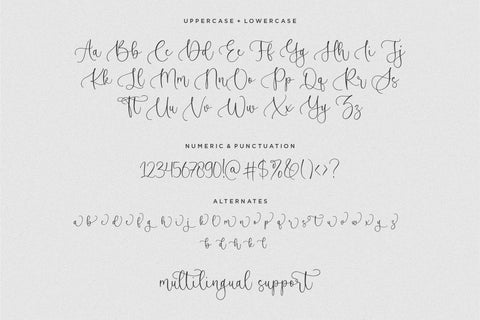 UPPERCASE + LOWERCASE
Aa Bb Cc Dd Ee Ff Gg Hh Ii Jj
Kk Ll Mm Nn Oo Pp Qq Rr Ss
Tt Uu Vv Ww Xx Yy Zz
NUMERIC & PUNCTUATION
1234567890!@#$%&()<>?
ALTERNATES
a b c d e f g h i j k l m n o p q r s t u v w x y z
b d h k l
multilingual support